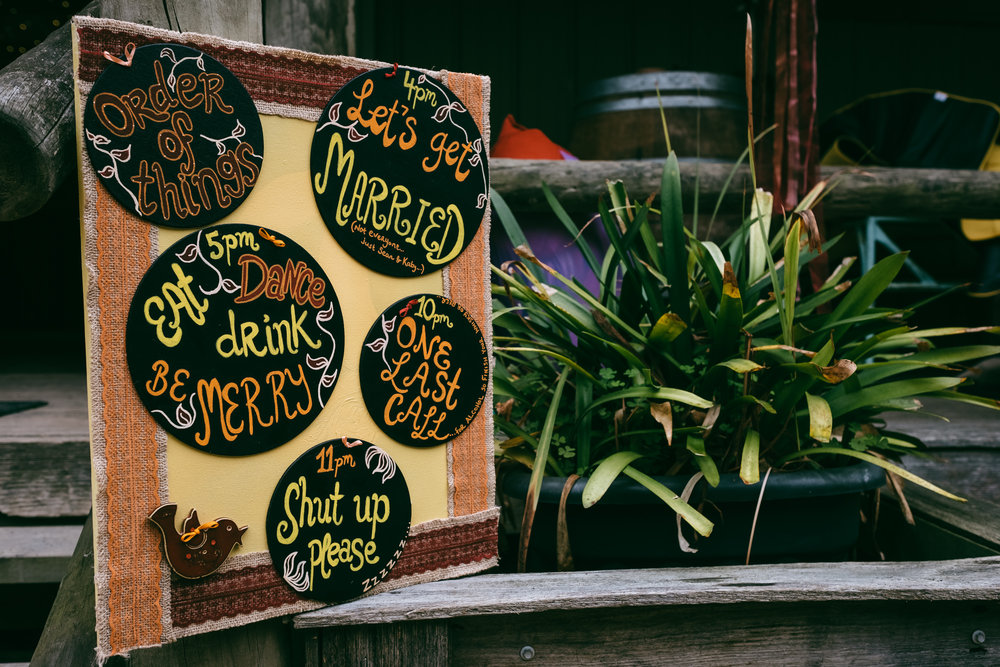 Order
of
things
4pm
Let's get
MARRIED
(Not Everyone...
Just Sean & Katy..)
5pm
EAt DANCE
drink
BE MERRY
10pm
ONE
LAST
CALL
...For ALCOHOL, So Finish
11pm
Shut up
please
ZZZZZZ